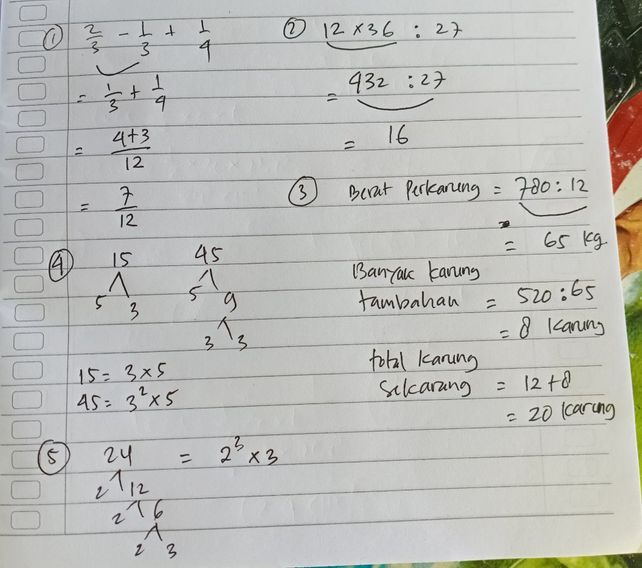 ① 2/3 - 1/3 + 1/4
= 1/3 + 1/4
= 4+3/12
= 7/12
② 12 x 36 : 27
= 432 : 27
= 16
③ Berat Perkarung = 780 : 12
= 65 kg
Banyak karung
tambahan = 520 : 65
= 8 karung
total karung
Sekarang = 12 + 8
= 20 karung
④ 15 45
5 3 5 9
3 3
15 = 3 x 5
45 = 3² x 5
⑤ 24 = 2³ x 3
2 12
2 6
2 3